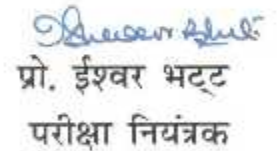 प्रो. ईश्वर भट्ट
परीक्षा नियंत्रक